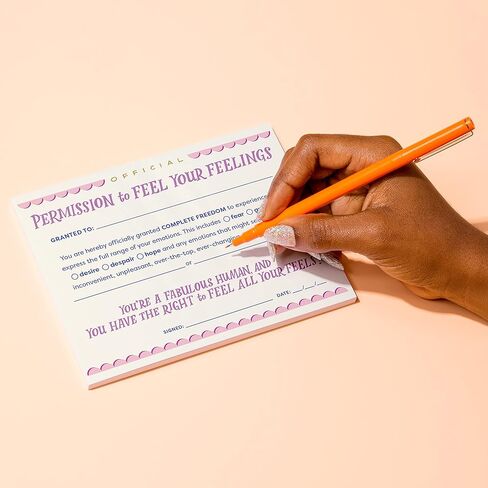 OFFICIAL
PERMISSION to FEEL YOUR FEELINGS
GRANTED TO:
You are hereby officially granted COMPLETE FREEDOM to experience
express the full range of your emotions. This includes fear
desire despair hope and any emotions that might
inconvenient, unpleasant, over-the-top, ever-changing
or
YOU'RE A FABULOUS HUMAN, AND
YOU HAVE THE RIGHT to FEEL ALL YOUR FEELINGS
SIGNED: DATE: